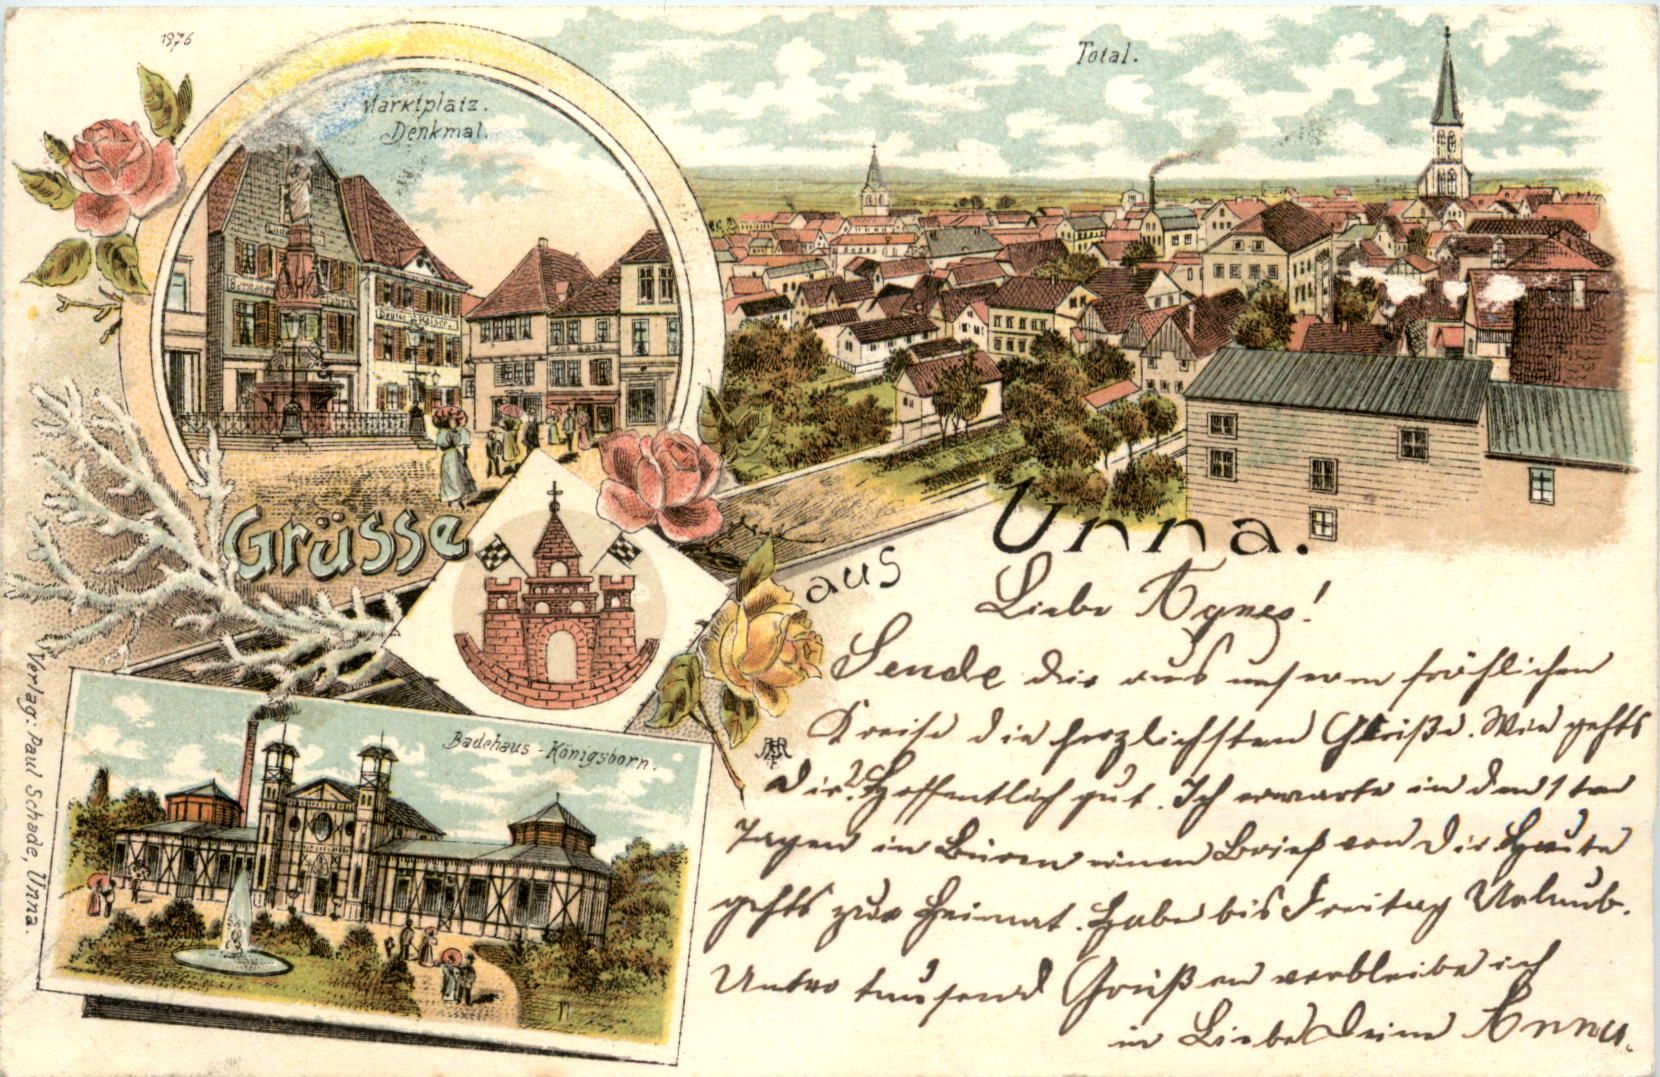 1876
Marktplatz.
Denkmal.
Total.
Grüsse
aus
Unna.
Badehaus-Königsborn.
Verlag: Paul Schade, Unna.
Liebe Agnes!
Sende dir aus unserm fröhlichen
Kreise die herzlichsten Grüße. Wie gehts
Dir? Hoffentlich gut. Ich erwarte in den 1ten
Tagen in Büren einen Brief von Dir. Heute
gehts zur Heimat. Habe bis Freitag Urlaub.
Unter tausend Grüßen verbleibe ich
in Liebe Deine Anna.